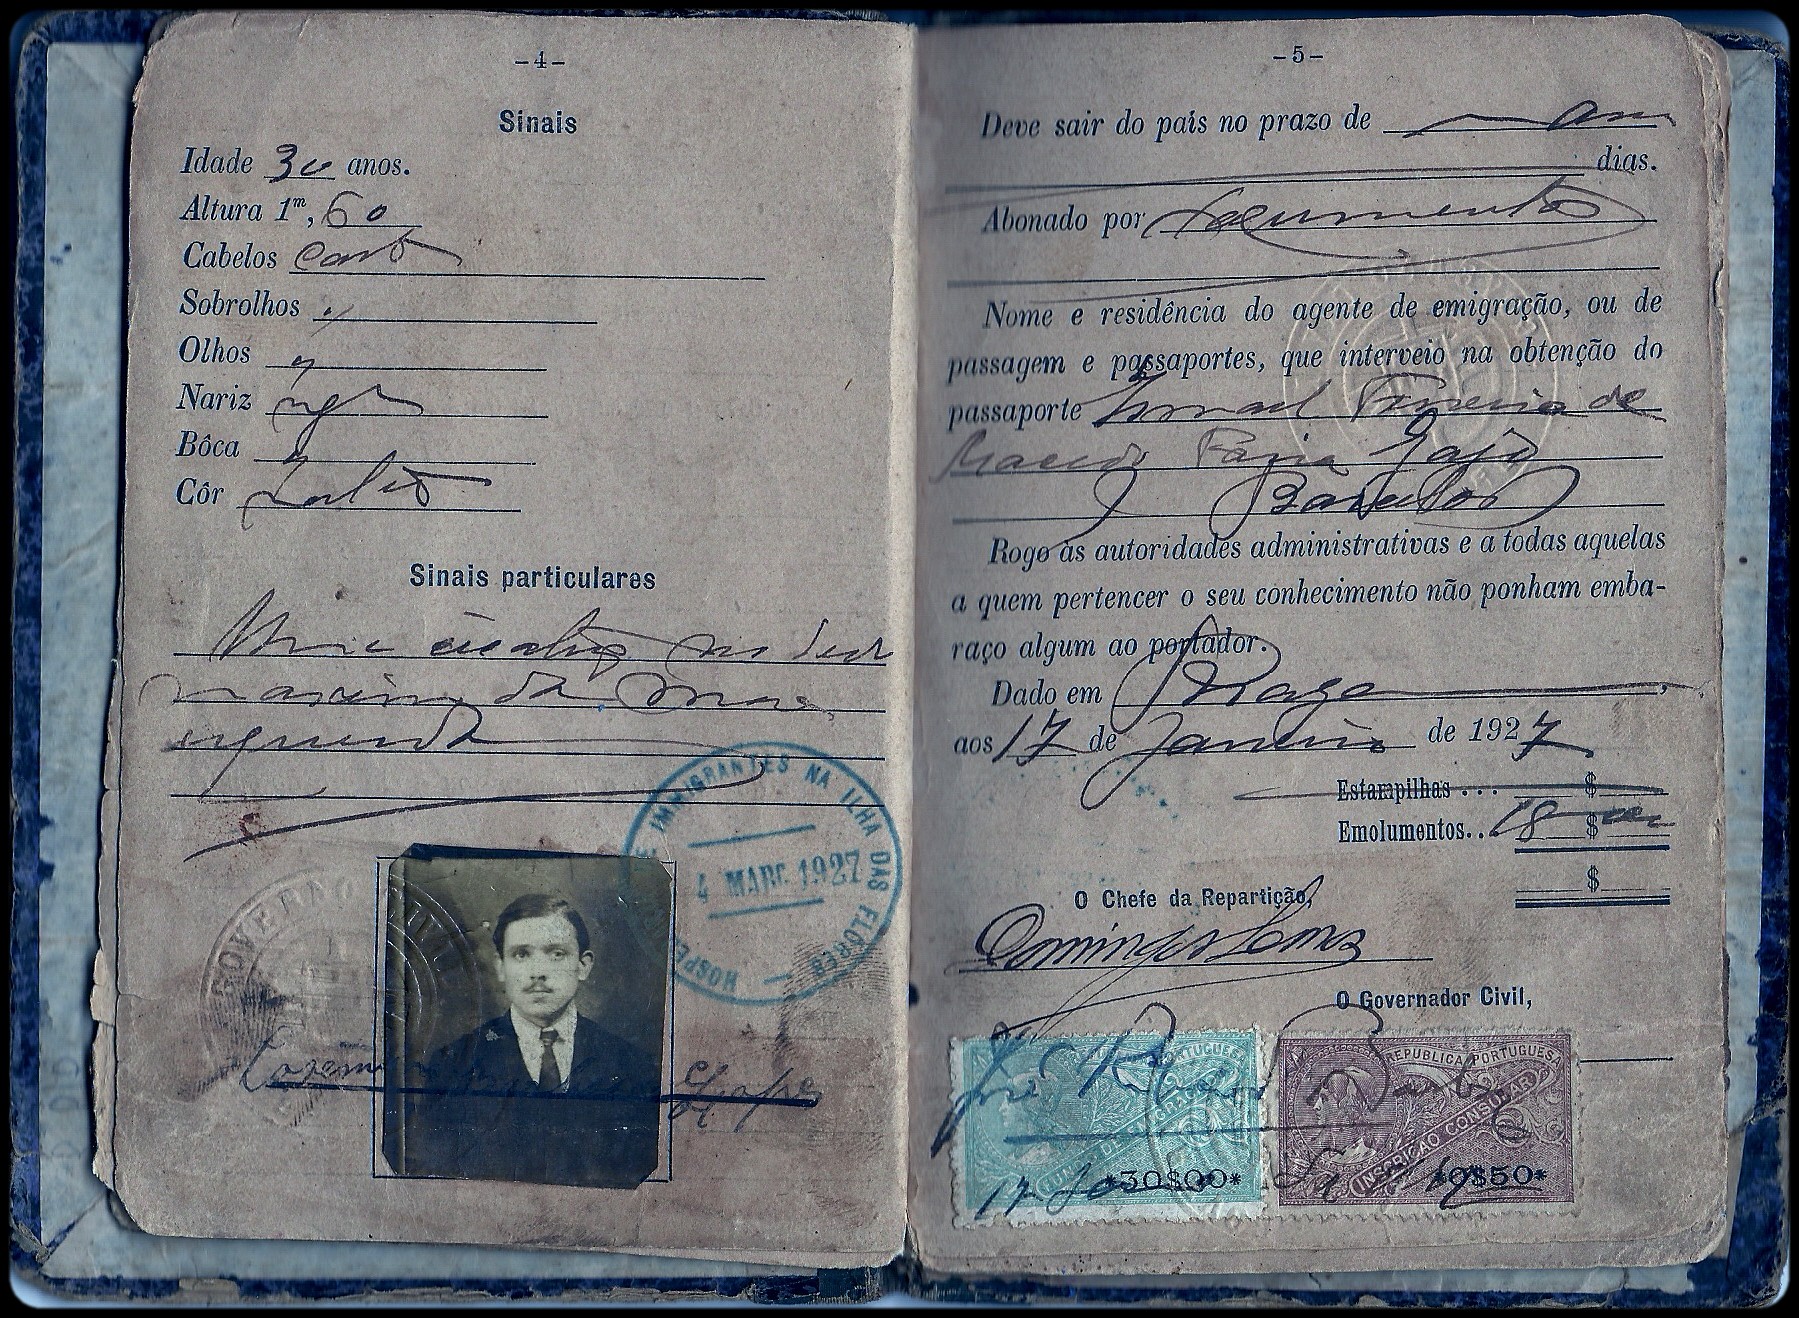 -4-
Sinais
Idade 30 anos.
Altura 1m, 60
Cabelos cast
Sobrolhos "
Olhos "
Nariz rgr
Bôca "
Côr
Sinais particulares
Uma cicatriz no dedo
da mão
esquerda
HOSPED DE IMMIGRANTES NA ILHA DAS FLORES
4 MARC 1927
GOVERNO CIVIL
-5-
Deve sair do país no prazo de
dias.
Abonado por documentos
Nome e residência do agente de emigração, ou de
passagem e passaportes, que interveio na obtenção do
passaporte Ismael Ferreira de
Macedo Faria Gajo
Barcelos
Rogo às autoridades administrativas e a todas aquelas
a quem pertencer o seu conhecimento não ponham emba-
raço algum ao portador.
Dado em Braga
aos 17 de Janeiro de 1927
Estampilhas ... $
Emolumentos.. 18 $
$
O Chefe da Repartição,
Domingos
O Governador Civil,
PORTUGUESA
REPUBLICA PORTUGUESA
INSCRIÇÃO CONSULAR
17 *30$00* *0$50*